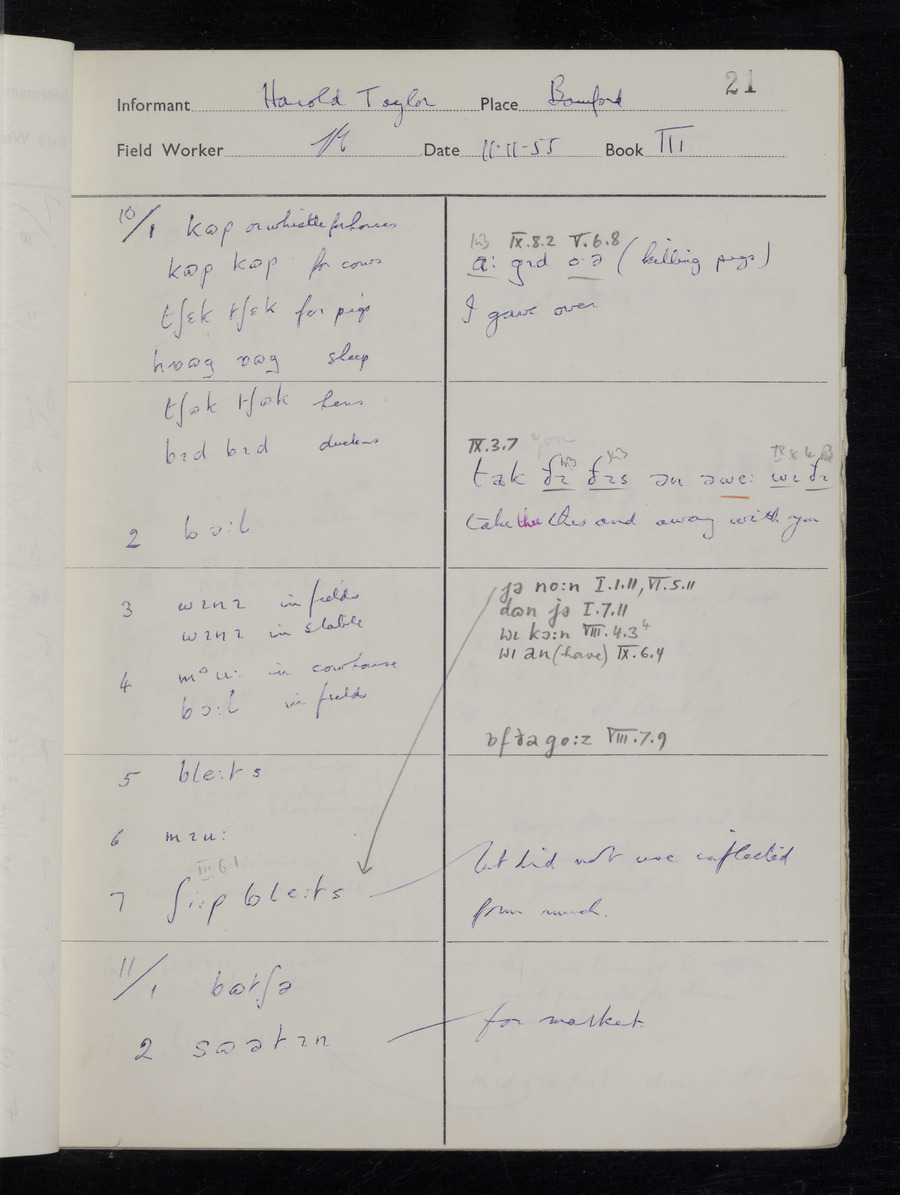 21
Informant Harold Taylor Place Bamford
Field Worker Date 11-11-55 Book III
10/1 kɷp or whistle for horses
kɷp kɷp for cows
tʃɛk tʃɛk for pigs
sheep
tʃɷk tʃɷk hens
bɪd bɪd
2 bɔ:l
3 wɪnɪ in fields
wɪnɪ in stable
4 in cowhouse
bɔ:l in fields
5 ble:ts
6 mɪu:
III.6.1
7 ʃi:p ble:ts
11/1 bɷtʃə
2
IX.8.2 V.6.8
a: gɪd ɔ:ə (killing pigs)
I gave over
IX.3.7 you
tak ðɪ ðɪs ən əwe: wɪ ðɪ
take thee this and away with you
jə no:n I.1.11, VI.5.11
dɷn jə I.7.11
wɪ kɔ:n VIII.4.3⁴
wɪ an (have) IX.6.4
ɒf ðə go:z VIII.7.9
but did not use inflected
form much.
for market.